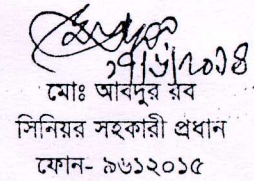 মোঃ আবদুর রব
সিনিয়র সহকারী প্রধান
ফোন- ৯৬১২০১৫